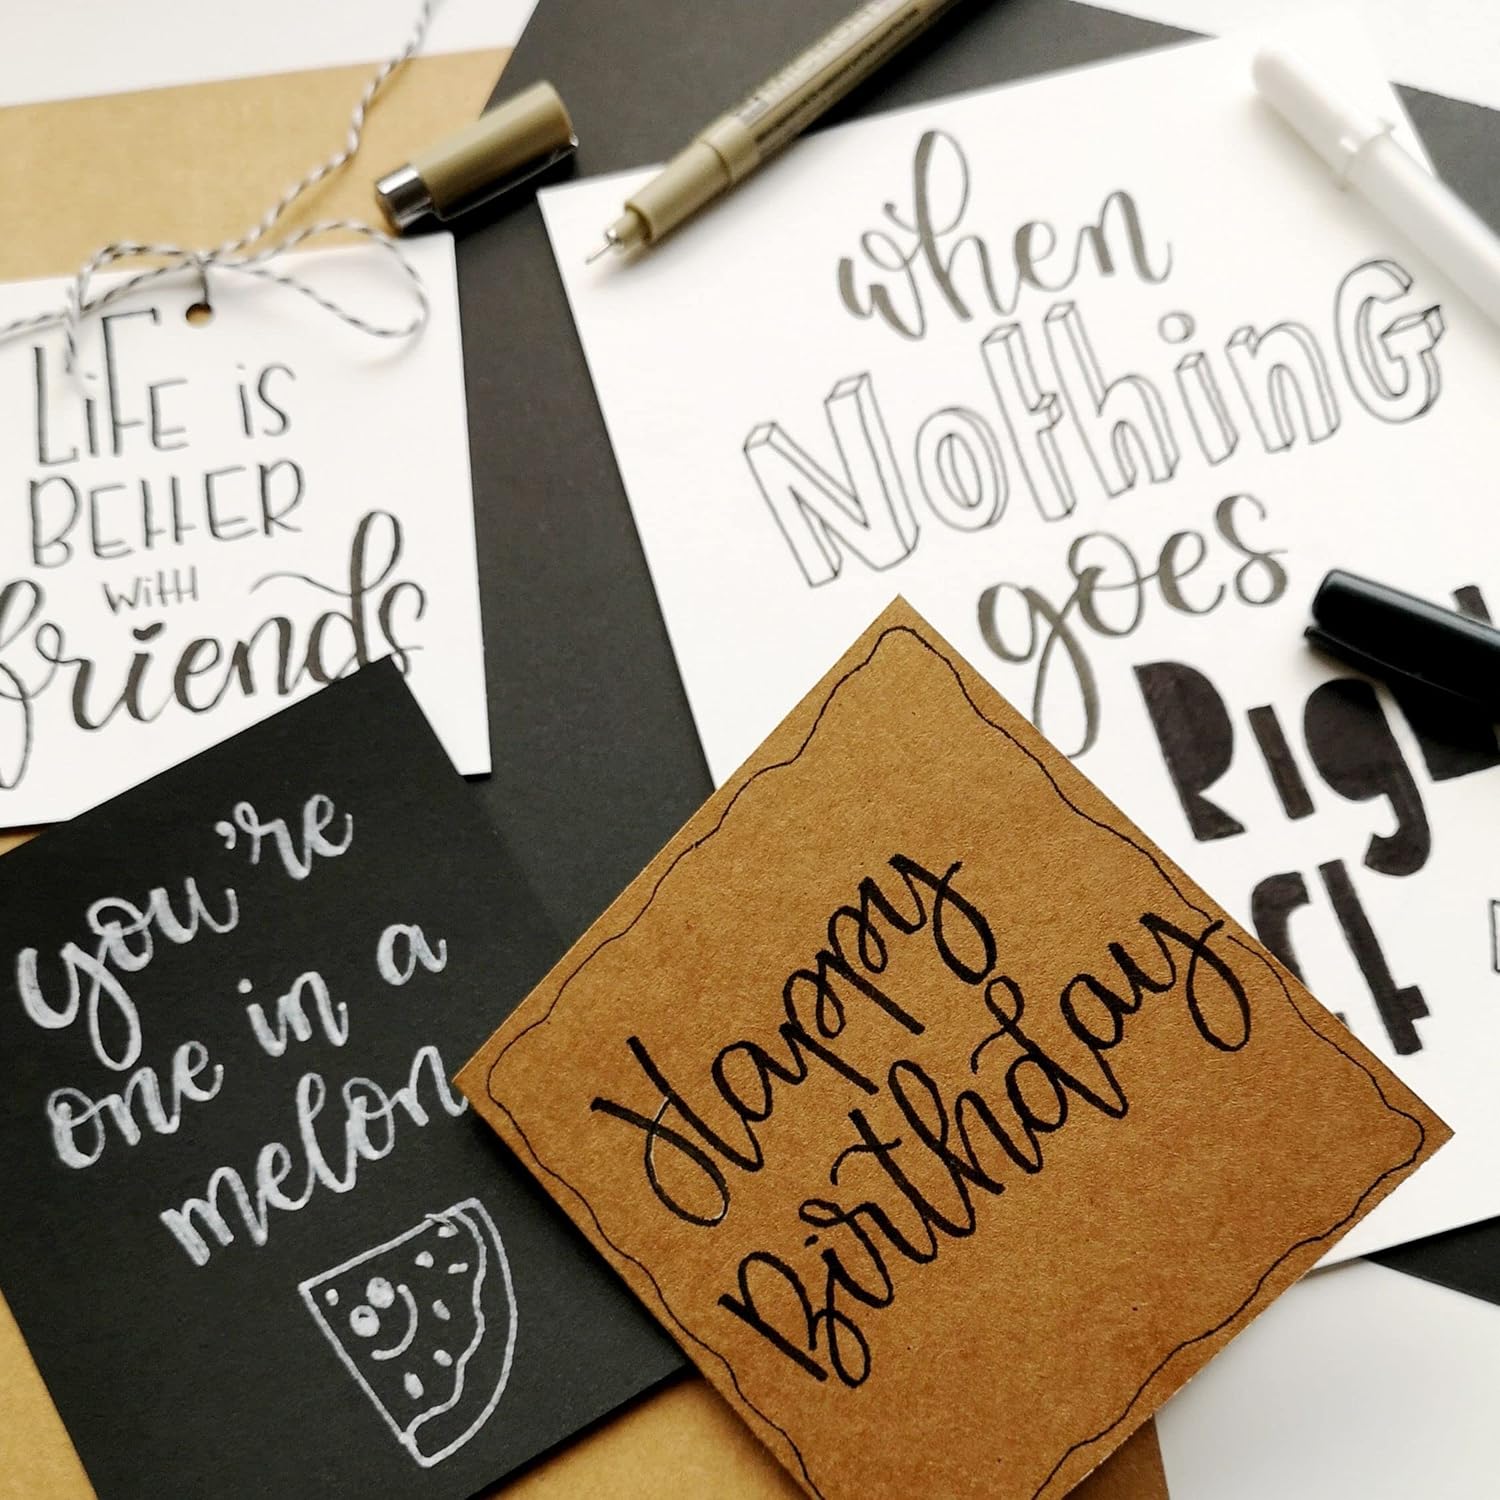 LiFE iS
BETTER
WiTH
friends
when
NothinG
goes
RIGHT
you're
one in a
melon
Happy
Birthday